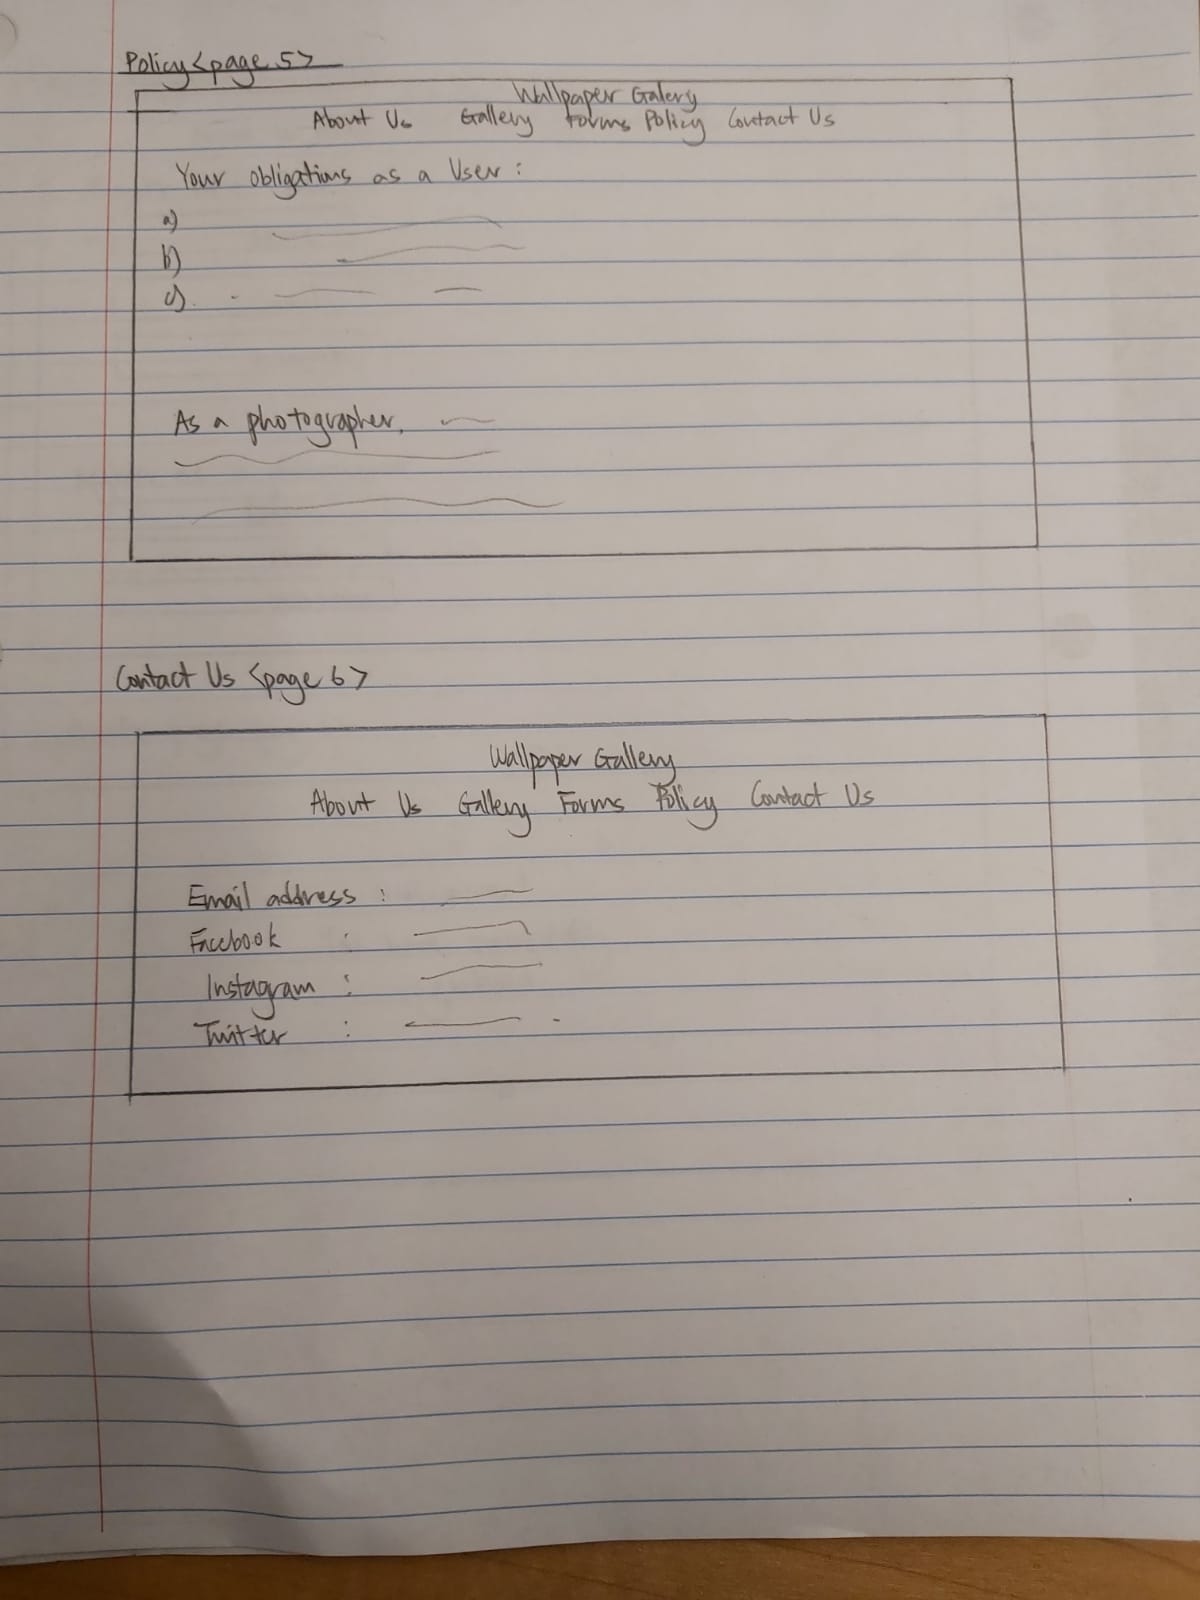 Policy <page 5>
Wallpaper Galery
About Us Gallery Forms Policy Contact Us
Your obligations as a User :
a)
b)
c)
As a photographer,
Contact Us <page 6>
Wallpaper Gallery
About Us Gallery Forms Policy Contact Us
Email address :
Facebook :
Instagram :
Twitter :